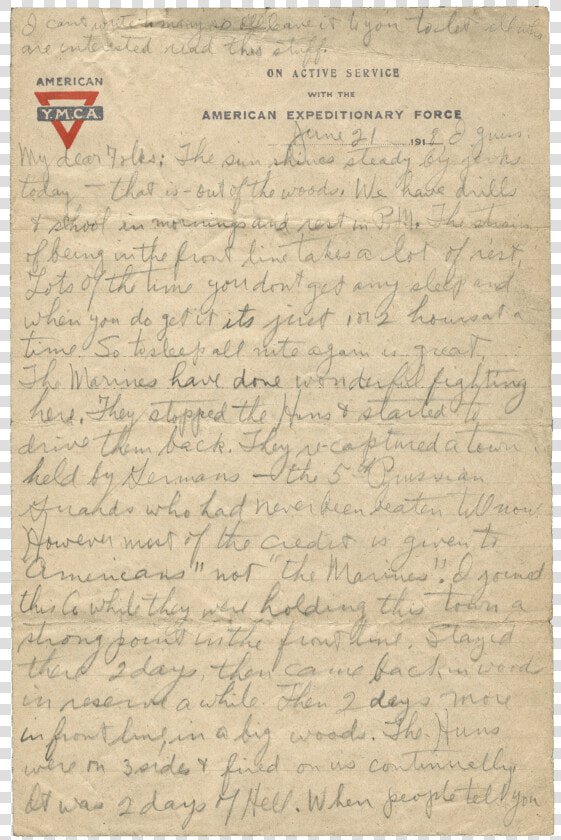 I can't write many so I'll leave it to you to let all who
are interested read this stuff.
AMERICAN
Y.M.C.A.
ON ACTIVE SERVICE
WITH THE
AMERICAN EXPEDITIONARY FORCE
June 21 1918 I guess.
My dear Folks: The sun shines steady by jerks
today — that is - out of the woods. We have drills
& school in mornings and rest in P.M. The strain
of being in the front line takes a lot of rest.
Lots of the time you don't get any sleep and
when you do get it its just 1 or 2 hours at a
time. So to sleep all nite again is great.
The Marines have done wonderful fighting
here. They stopped the Huns & started to
drive them back. They re-captured a town
held by Germans — the 5th Prussian
Guards who had never been beaten till now
However most of the credit is given to
"Americans" not "the Marines". I joined
this Co while they were holding this town a
strong point in the front line. Stayed
there 2 days, then came back in wood
in reserve a while. Then 2 days more
in front line, in a big woods. The Huns
were on 3 sides & fired on us continually
It was 2 days of Hell. When people tell you